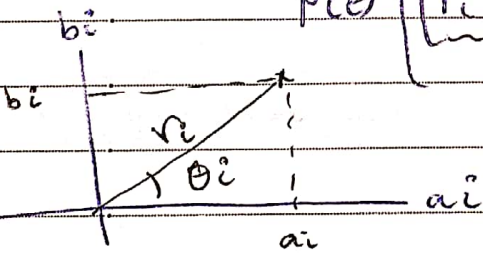 bi
bi
ri
θi
ai
ai